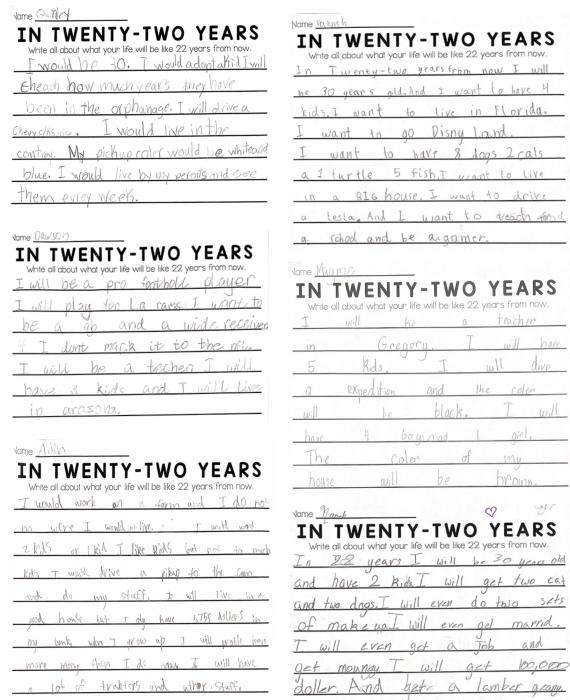 Name
IN TWENTY-TWO YEARS
Write all about what your life will be like 22 years from now.
I would be 30. I would adopt a kid I will
cheach how much years they have
been in the orphanage. I will drive a
I would live in the
contry. My pickup coler would be white and
blue. I would live by my perints and see
them every week.
Name Dawson
IN TWENTY-TWO YEARS
Write all about what your life will be like 22 years from now.
I will be a pro football player
I will play for La rams. I want to
be a qb and a wide receiver
if I dont mack it to the nfl.
I will be a techer I will
have 3 kids and I will live
in arasona.
Name
IN TWENTY-TWO YEARS
Write all about what your life will be like 22 years from now.
I would work on a farm and I do not
no were I would live. I will want
2 kids or 1 kid I like kids but not to much
kids I would drive a pikup to the farm
and do my stuff. I will live in a
good house but I oly have 1,755 dollers in
my bank when I grow up I will proble have
more mony then I do now I will have
a lot of tracters and uther stuff.
Name
IN TWENTY-TWO YEARS
Write all about what your life will be like 22 years from now.
In Twenty-two years from now I will
be 30 years old. And I want to have 4
kids. I want to live in Florida.
I want to go Disny Land.
I want to have 8 dogs 2 cats
a 1 turtle 5 fish. I want to live
in a BIG house. I want to drive
a tesla. And I want to teach
a school and be a gamer.
Name
IN TWENTY-TWO YEARS
Write all about what your life will be like 22 years from now.
I will be a teacher
in Gregory. I will have
5 kids. I will dive
a expedition and the coler
will be black. I will
have 4 boys and 1 girl.
The coler of my
house will be brown.
Name
IN TWENTY-TWO YEARS
Write all about what your life will be like 22 years from now.
In 22 years I will be 30 years old
and have 2 kids I will get two cat
and two dogs. I will even do two sets
of makeup I will even get married.
I will even get a Job and
get mouney I will get 100,000
doller. And a lamber